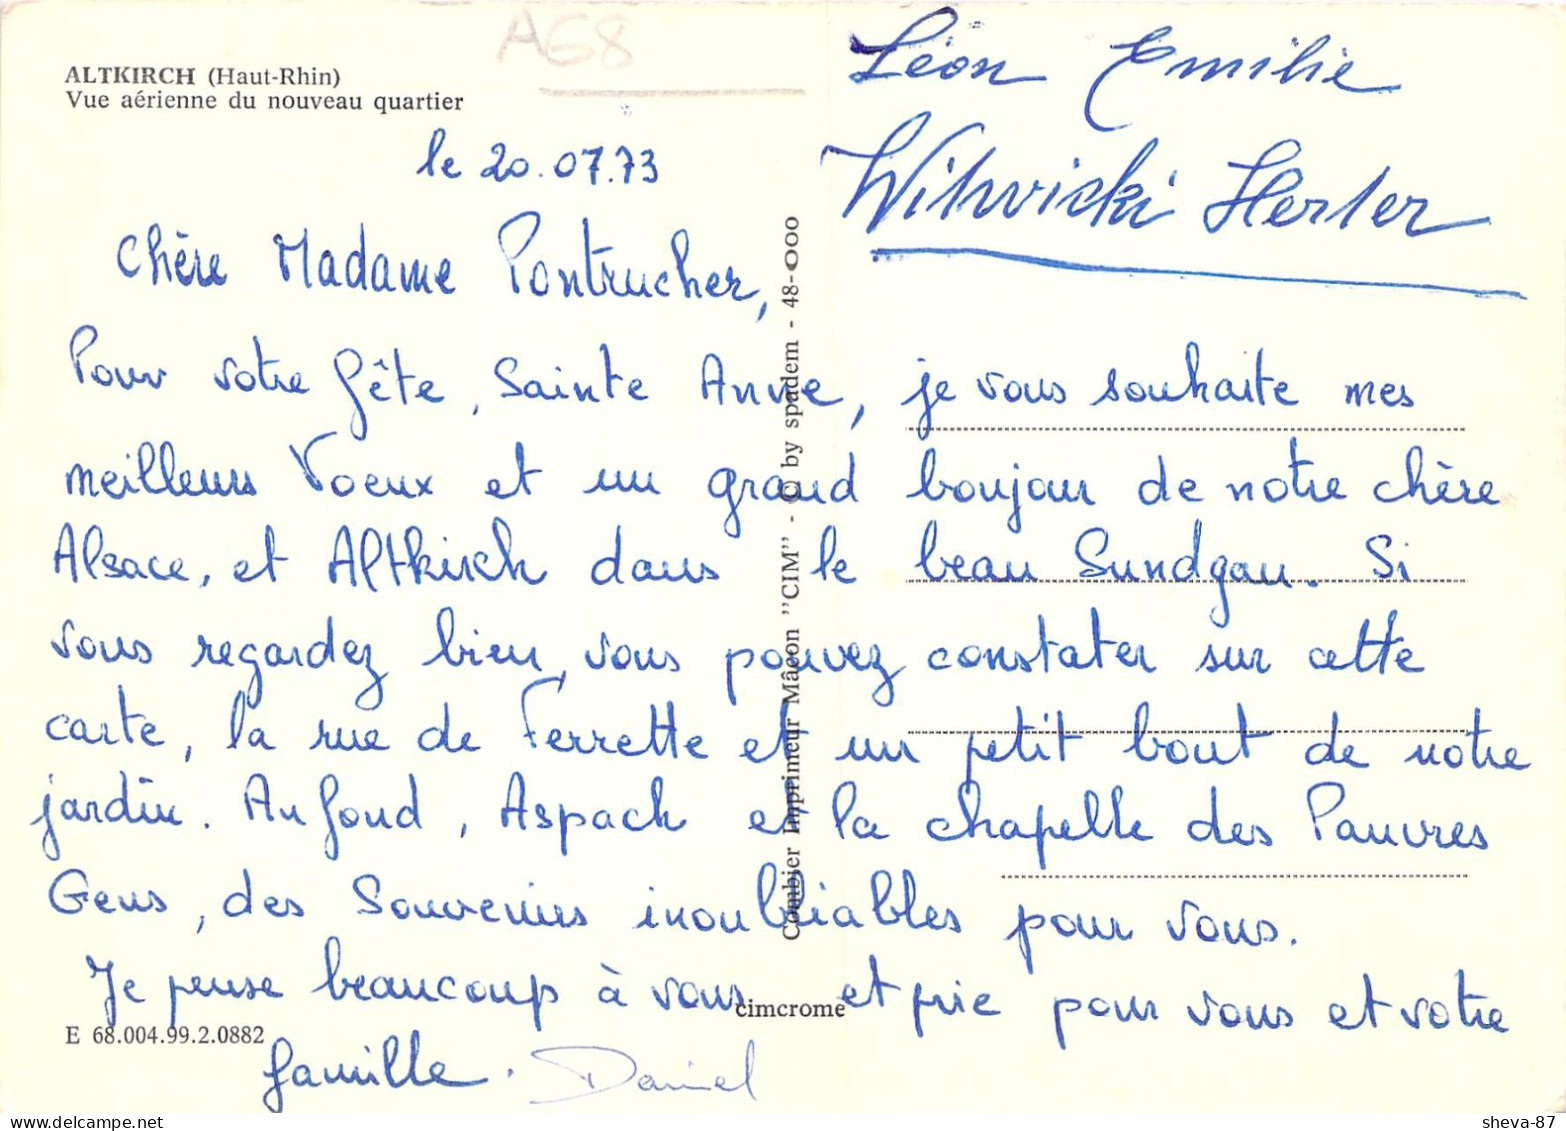 AG8
ALTKIRCH (Haut-Rhin)
Vue aérienne du nouveau quartier
Léon Emilie
Witwicki Herter
le 20.07.73
Chère Madame Pontrucher,
Pour votre fête, Sainte Anne, je vous souhaite mes
meilleurs Voeux et un grand boujour de notre chère
Alsace, et Altkirch dans le beau Sundgau. Si
vous regardez bien, vous pouvez constater sur cette
carte, la rue de Ferrette et un petit bout de notre
jardin. Au fond, Aspach et la chapelle des Pauvres
Gens, des Souvenirs inoubliables pour vous.
Je pense beaucoup à vous et prie pour vous et votre
famille. Daniel
Combier Imprimeur Mâcon "CIM" - © by spadem - 48-000
cimcrome
E 68.004.99.2.0882
sheva-87